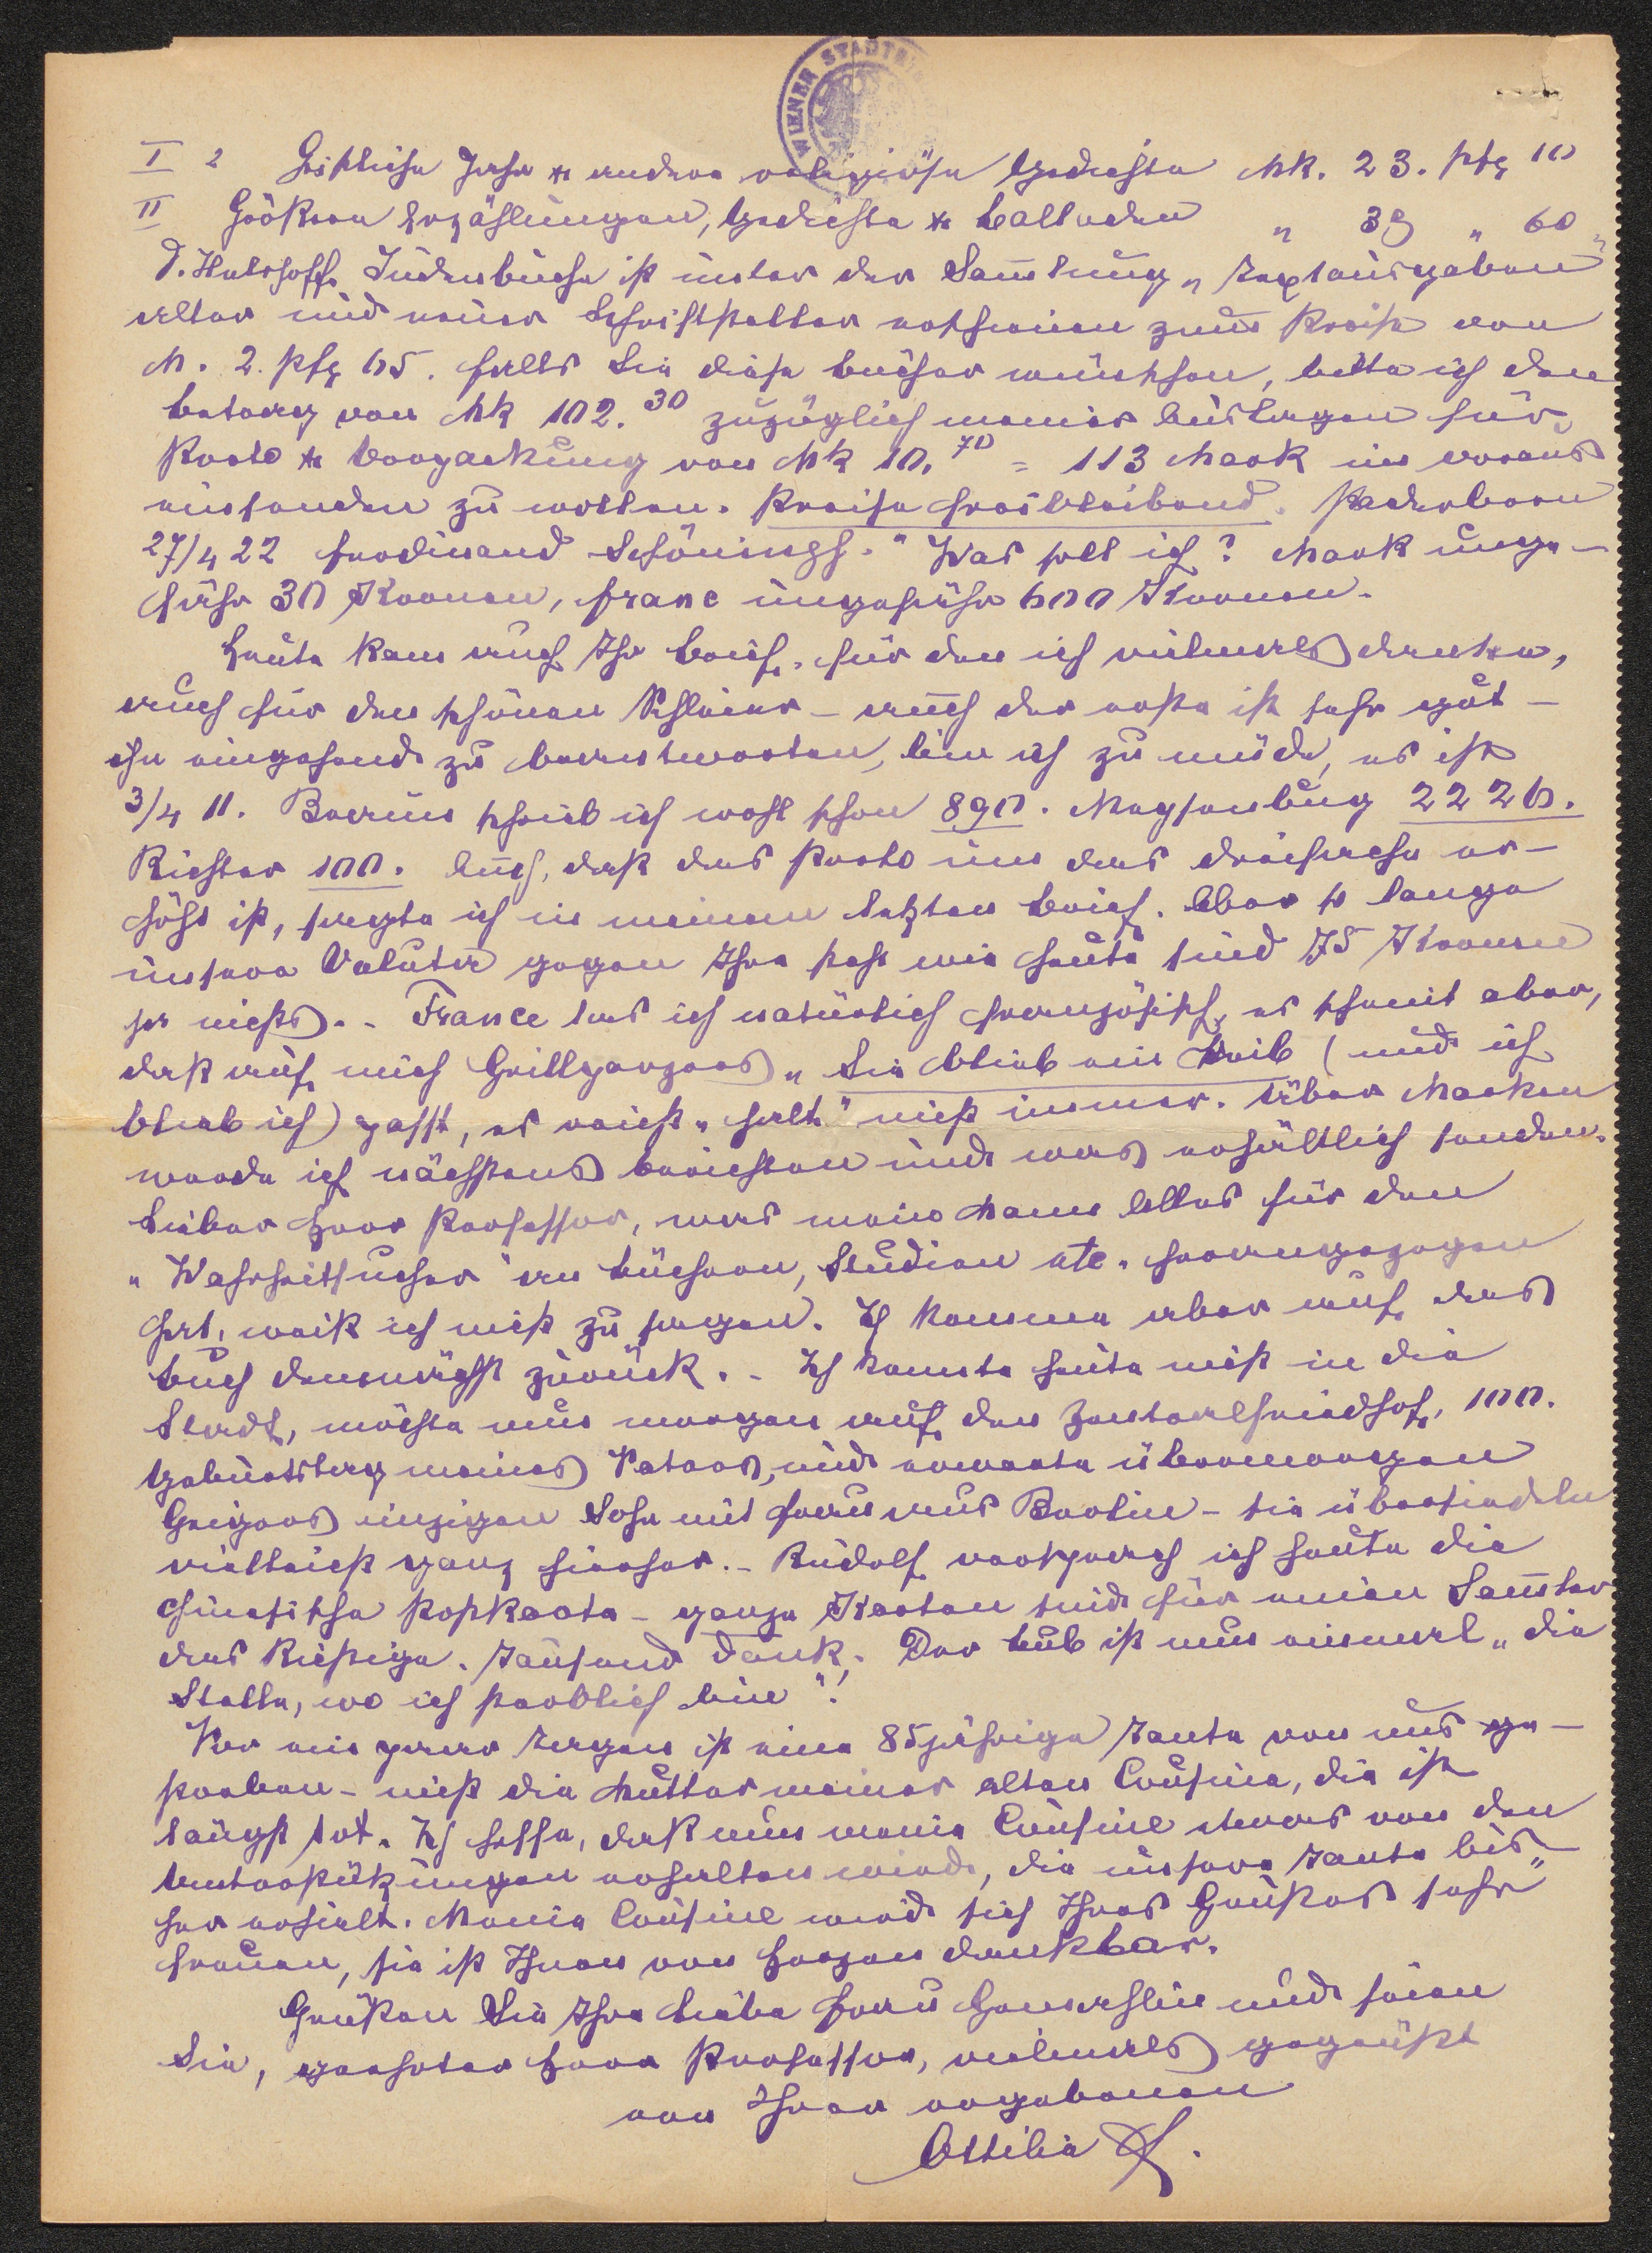 WIENER STADTBI
I 2 Geistliche Jahr & andere religiöse Gedichte Mk. 23. Pfg 10
II Größere Erzählungen, Gedichte & Balladen „ 39 „ 60 „
D. Hülshoffs Judenbuche ist in der Sammlung „Textausgaben
alter und neuer Schriftsteller erschienen zum Preise von
M. 2. Pfg 65. Falls Sie diese Bücher wünschen, bitte ich den
Betrag von Mk 102.30 zuzüglich meiner Auslagen für
Porto & Verpackung von Mk 10.70 = 113 Mark im voraus
einsenden zu wollen. Preise freibleibend. Paderborn
27/4 22 Ferdinand Schöningh.“ Was soll ich? Mark unge-
fähr 30 Kronen, franc ungefähr 600 Kronen.
Heute kam auch Ihr Brief, für den ich vielmals danke,
auch für den schönen Schleier – auch der erste ist sehr gut –
ihn eingehend zu beantworten, bin ich zu müde, es ist
3/4 11. Braun schrieb ich wohl schon 890. Maysenbug 2226.
Richter 100. Auch, daß das Porto um das dreifache er-
höht ist, sagte ich in meinem letzten Brief. Aber so lange
unsere Valuta gegen Ihre steht wie heute sind 75 Kronen
ja nichts. – France las ich natürlich französisch, es scheint aber,
daß auf mich Grillparzers „Sie blieb ein Weib (und ich
blieb ich) paßt, es reicht „halt“ nicht immer. Über Marken
werde ich nächstens berichten und was erhältlich senden.
Lieber Herr Professor, was mein Mann Alles für den
„Wahrheitsucher“ an Büchern, Studien etc. herangezogen
hat, weiß ich nicht zu sagen. Ich komme aber auf das
Buch demnächst zurück. – Ich konnte heute nicht in die
Stadt, möchte nun morgen auf den Zentralfriedhof, 100.
Geburtstag meines Vaters, und erwarte übermorgen
Geigers einzigen Sohn mit Frau aus Berlin – sie übersiedeln
vielleicht ganz hierher. – Rudolf versprach ich heute die
chinesische Postkarte – ganze Karten sind für einen Sammler
das Richtige. Tausend Dank. Der Bub ist nun einmal „die
Stelle, wo ich sterblich bin“!
Vor ein paar Tagen ist eine 85jährige Tante von uns ge-
storben – nicht die Mutter meiner alten Cousine, die ist
längst tot. Ich hoffe, daß nun meine Cousine etwas von den
Unterstützungen erhalten wird, die unsere Tante bis-
her erhielt. Meine Cousine wird sich Ihres Grußes sehr
freuen, sie ist Ihnen von Herzen dankbar.
Grüßen Sie Ihre liebe Frau Gemahlin und seien
Sie, geehrter Herr Professor, vielmals gegrüßt
von Ihrer ergebenen
Ottilie